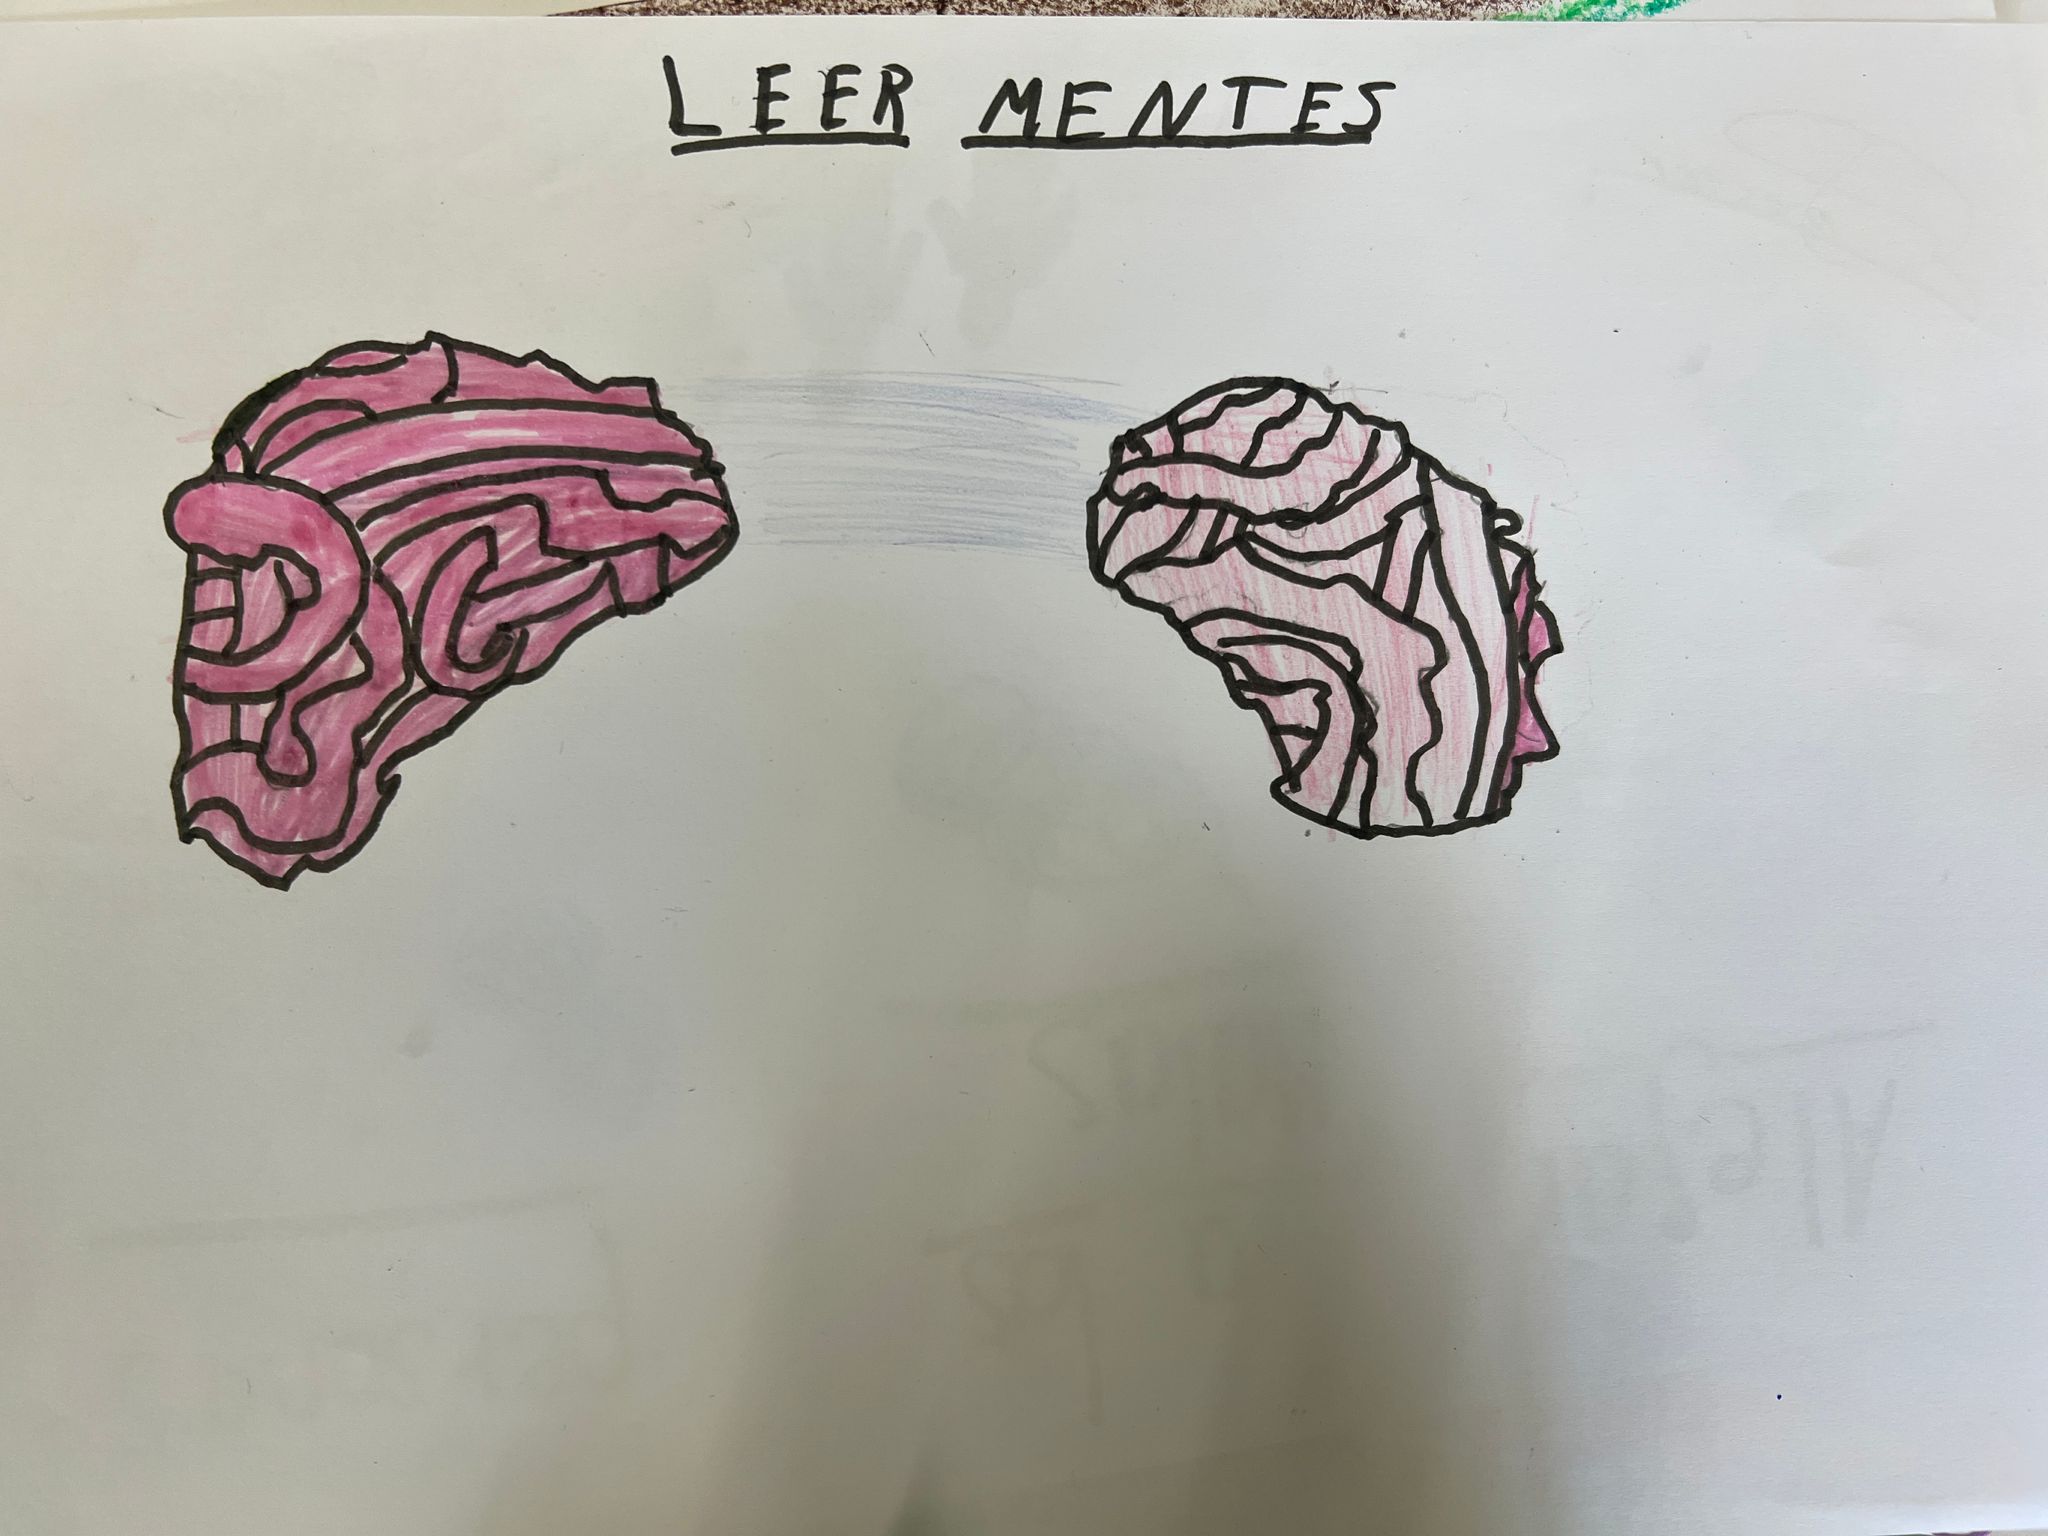 LEER MENTES